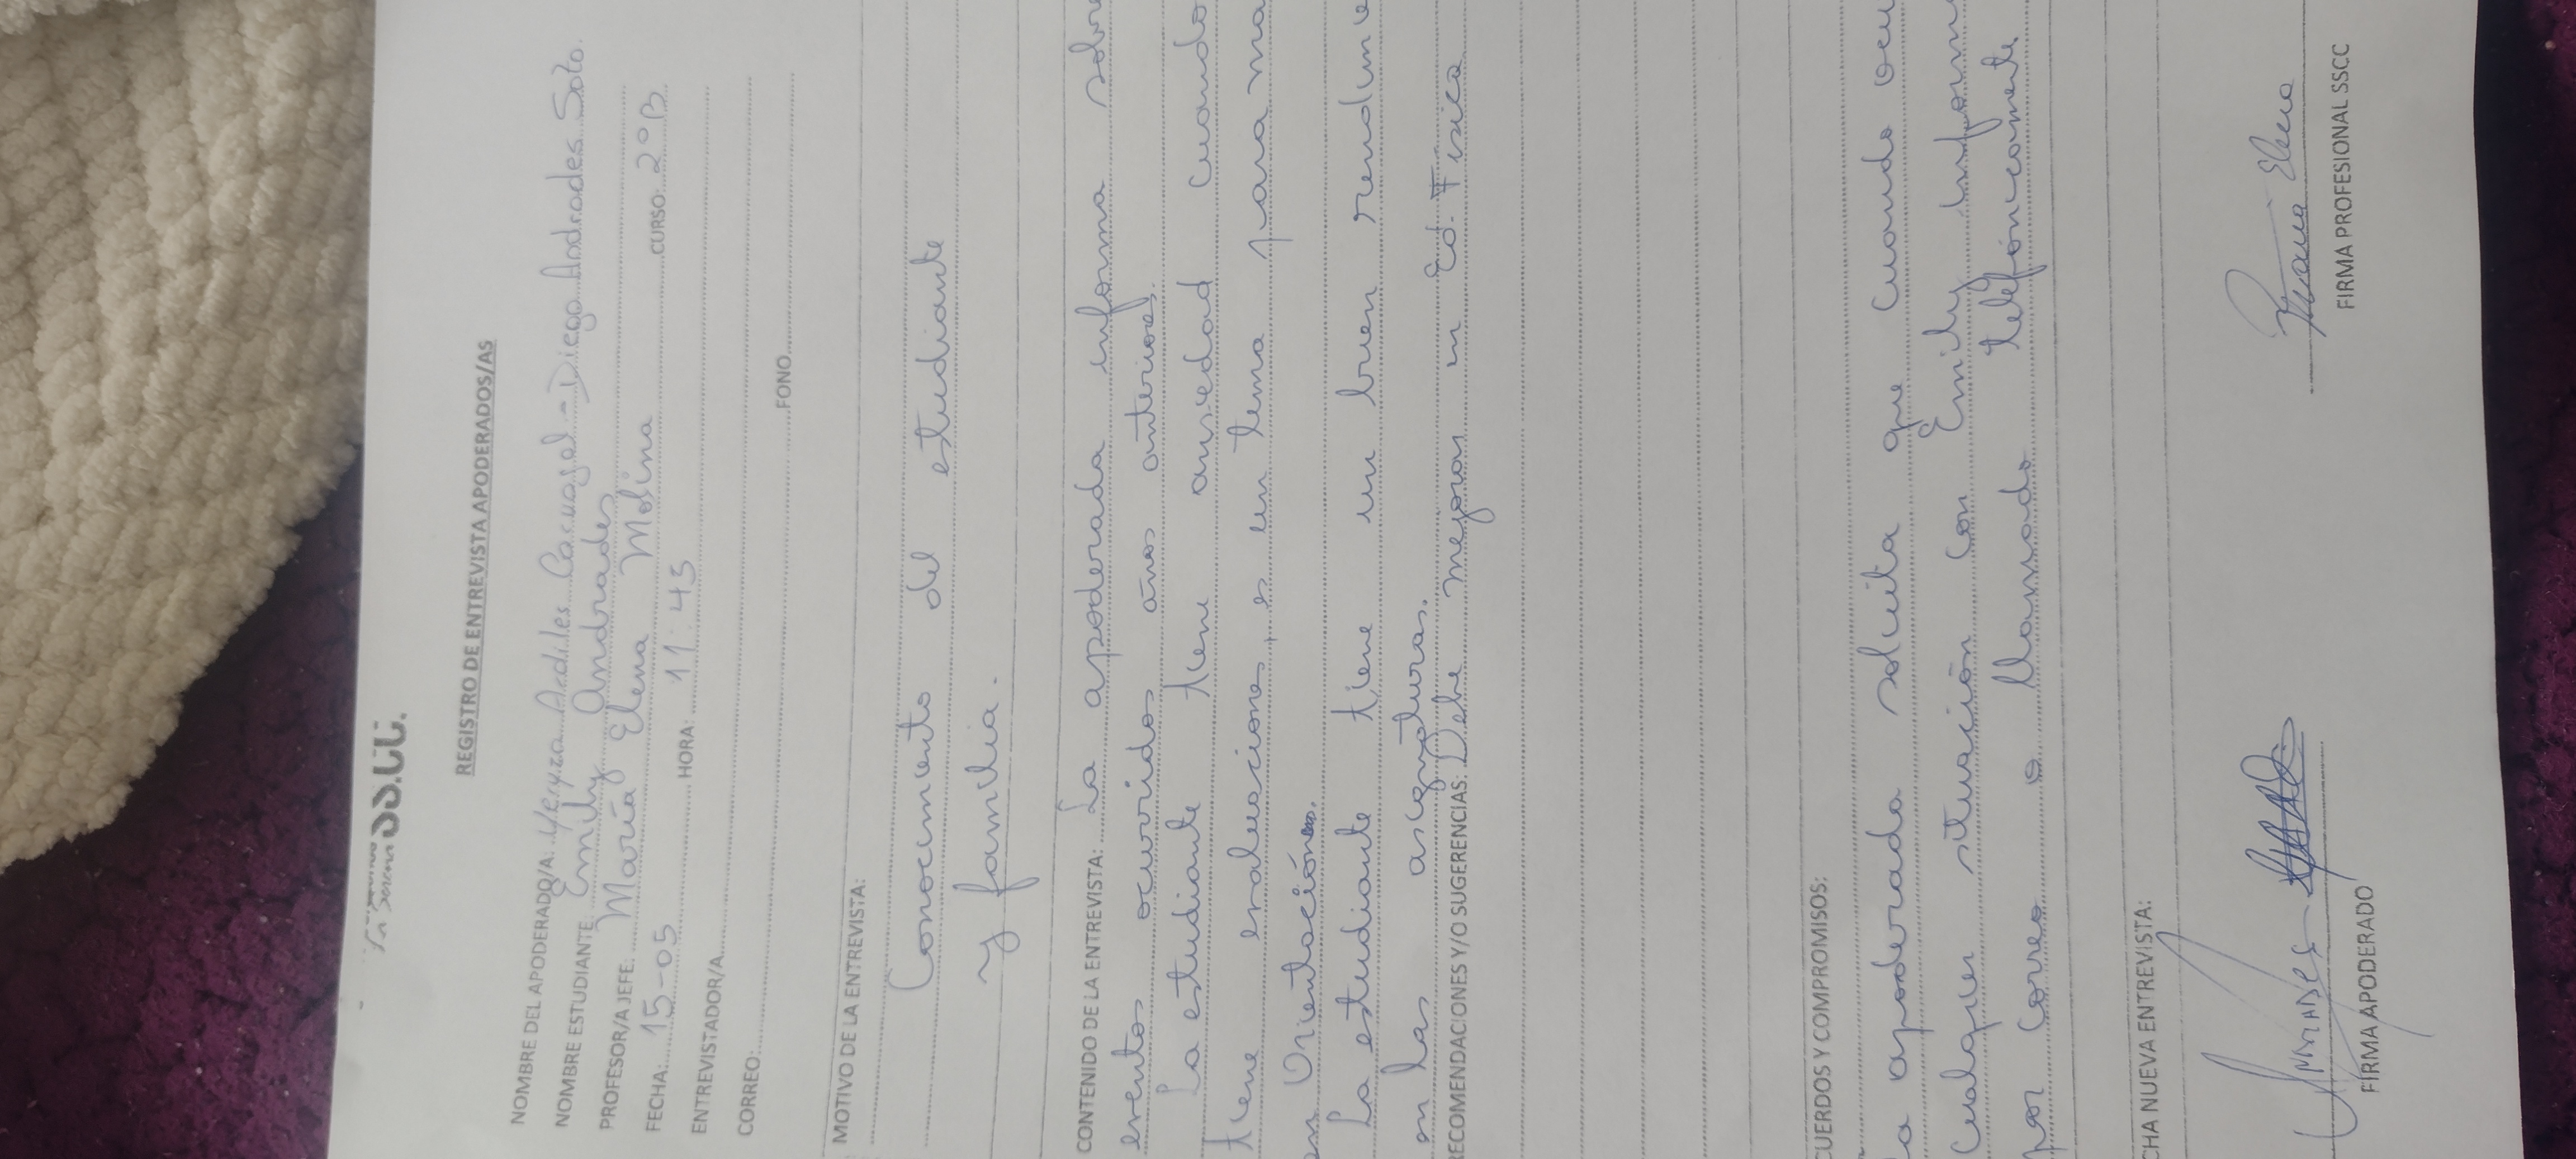 SS.CC.
La Serena
REGISTRO DE ENTREVISTA APODERADOS/AS
NOMBRE DEL APODERADO/A: Yerza Ardiles Carvajal - Diego Andrades Soto.
NOMBRE ESTUDIANTE: Emily Andrades
PROFESOR/A JEFE: María Elena Molina CURSO: 2°B
FECHA: 15-05 HORA: 11:45
ENTREVISTADOR/A
CORREO: FONO
MOTIVO DE LA ENTREVISTA:
Conocimiento del estudiante
y familia.
CONTENIDO DE LA ENTREVISTA: La apoderada informa sobre
eventos ocurridos años anteriores.
La estudiante tiene ansiedad cuando
tiene evaluaciones, es un tema para
en Orientación.
La estudiante tiene un buen
en las asignaturas.
RECOMENDACIONES Y/O SUGERENCIAS: Debe mejorar en Ed. Física
CUERDOS Y COMPROMISOS:
La apoderada solicita que cuando
cualquier situación con Emily
por correo o llamado telefónicamente
CHA NUEVA ENTREVISTA:
FIRMA APODERADO
FIRMA PROFESIONAL SSCC